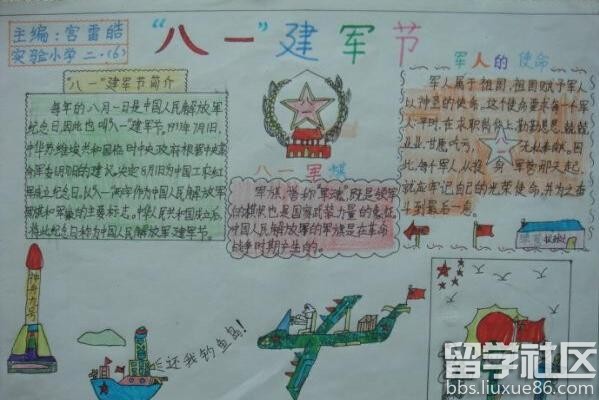 主编:宫雷皓
实验小学二.(6)
“八一”建军节
“八一”建军节简介
每年的八月一日是中国人民解放军
纪念日,因此也叫八一"建军节。1933年7月1日,
中华苏维埃共和国临时中央政府根据中央革
命军委6月30日的建议,决定8月1日为中国工农红
军成立纪念日。从八一作为中国人民解放军
军旗和军徽的主要标志。中华人民共和国成立后,
将此纪念日称为中国人民解放军建军节。
八一
八一军棋
军旗,曾称“军 既是领军
的棋帜也是国家武装力量的象征,
中国人民解放军的军旗是在革命
战争时期立生的。
军人的使命
军人属于祖国,祖国赋予军人
以神圣的使命。这个使命要求每一个军
人:平时,在求职岗位上,勤勤恳恳,兢兢
业业,甘愿吃亏, 无私奉献。因
此,每个军人,从 军营那天起,
就应牢记自己的光荣使命,并为之奋
斗到最后一息。
神舟九号
还我钓鱼岛!
留学社区
bbs.liuxue86.com